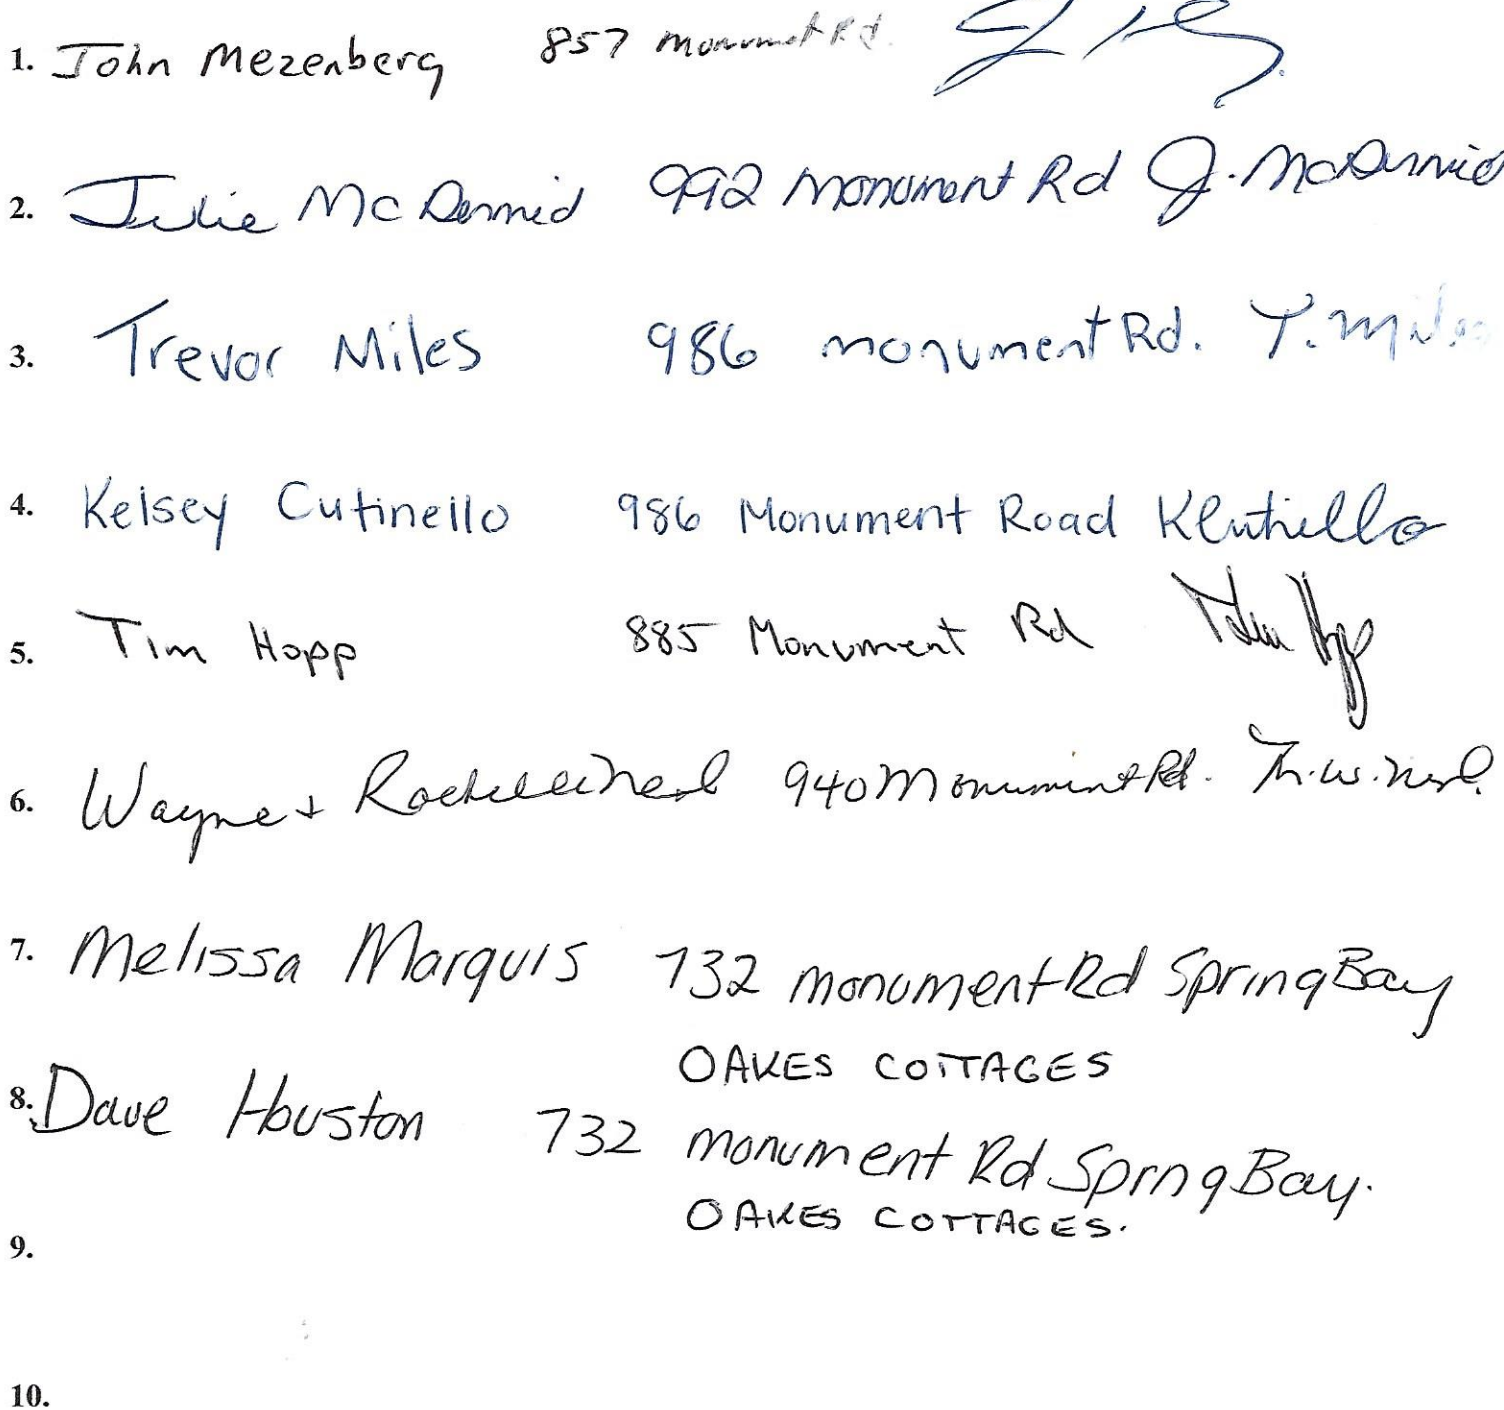 1. John Mezenberg 857 Monument Rd.
2. Julie McDermid 992 Monument Rd J. McDermid
3. Trevor Miles 986 monument Rd. T. Miles
4. Kelsey Cutinello 986 Monument Road KCutinello
5. Tim Hopp 885 Monument Rd Tim Hopp
6. Wayne + 940 Monument Rd.
7. Melissa Marquis 732 monument Rd Spring Bay
OAKES COTTAGES
8. Dave Houston 732 monument Rd Spring Bay.
OAKES COTTAGES.
9.
10.